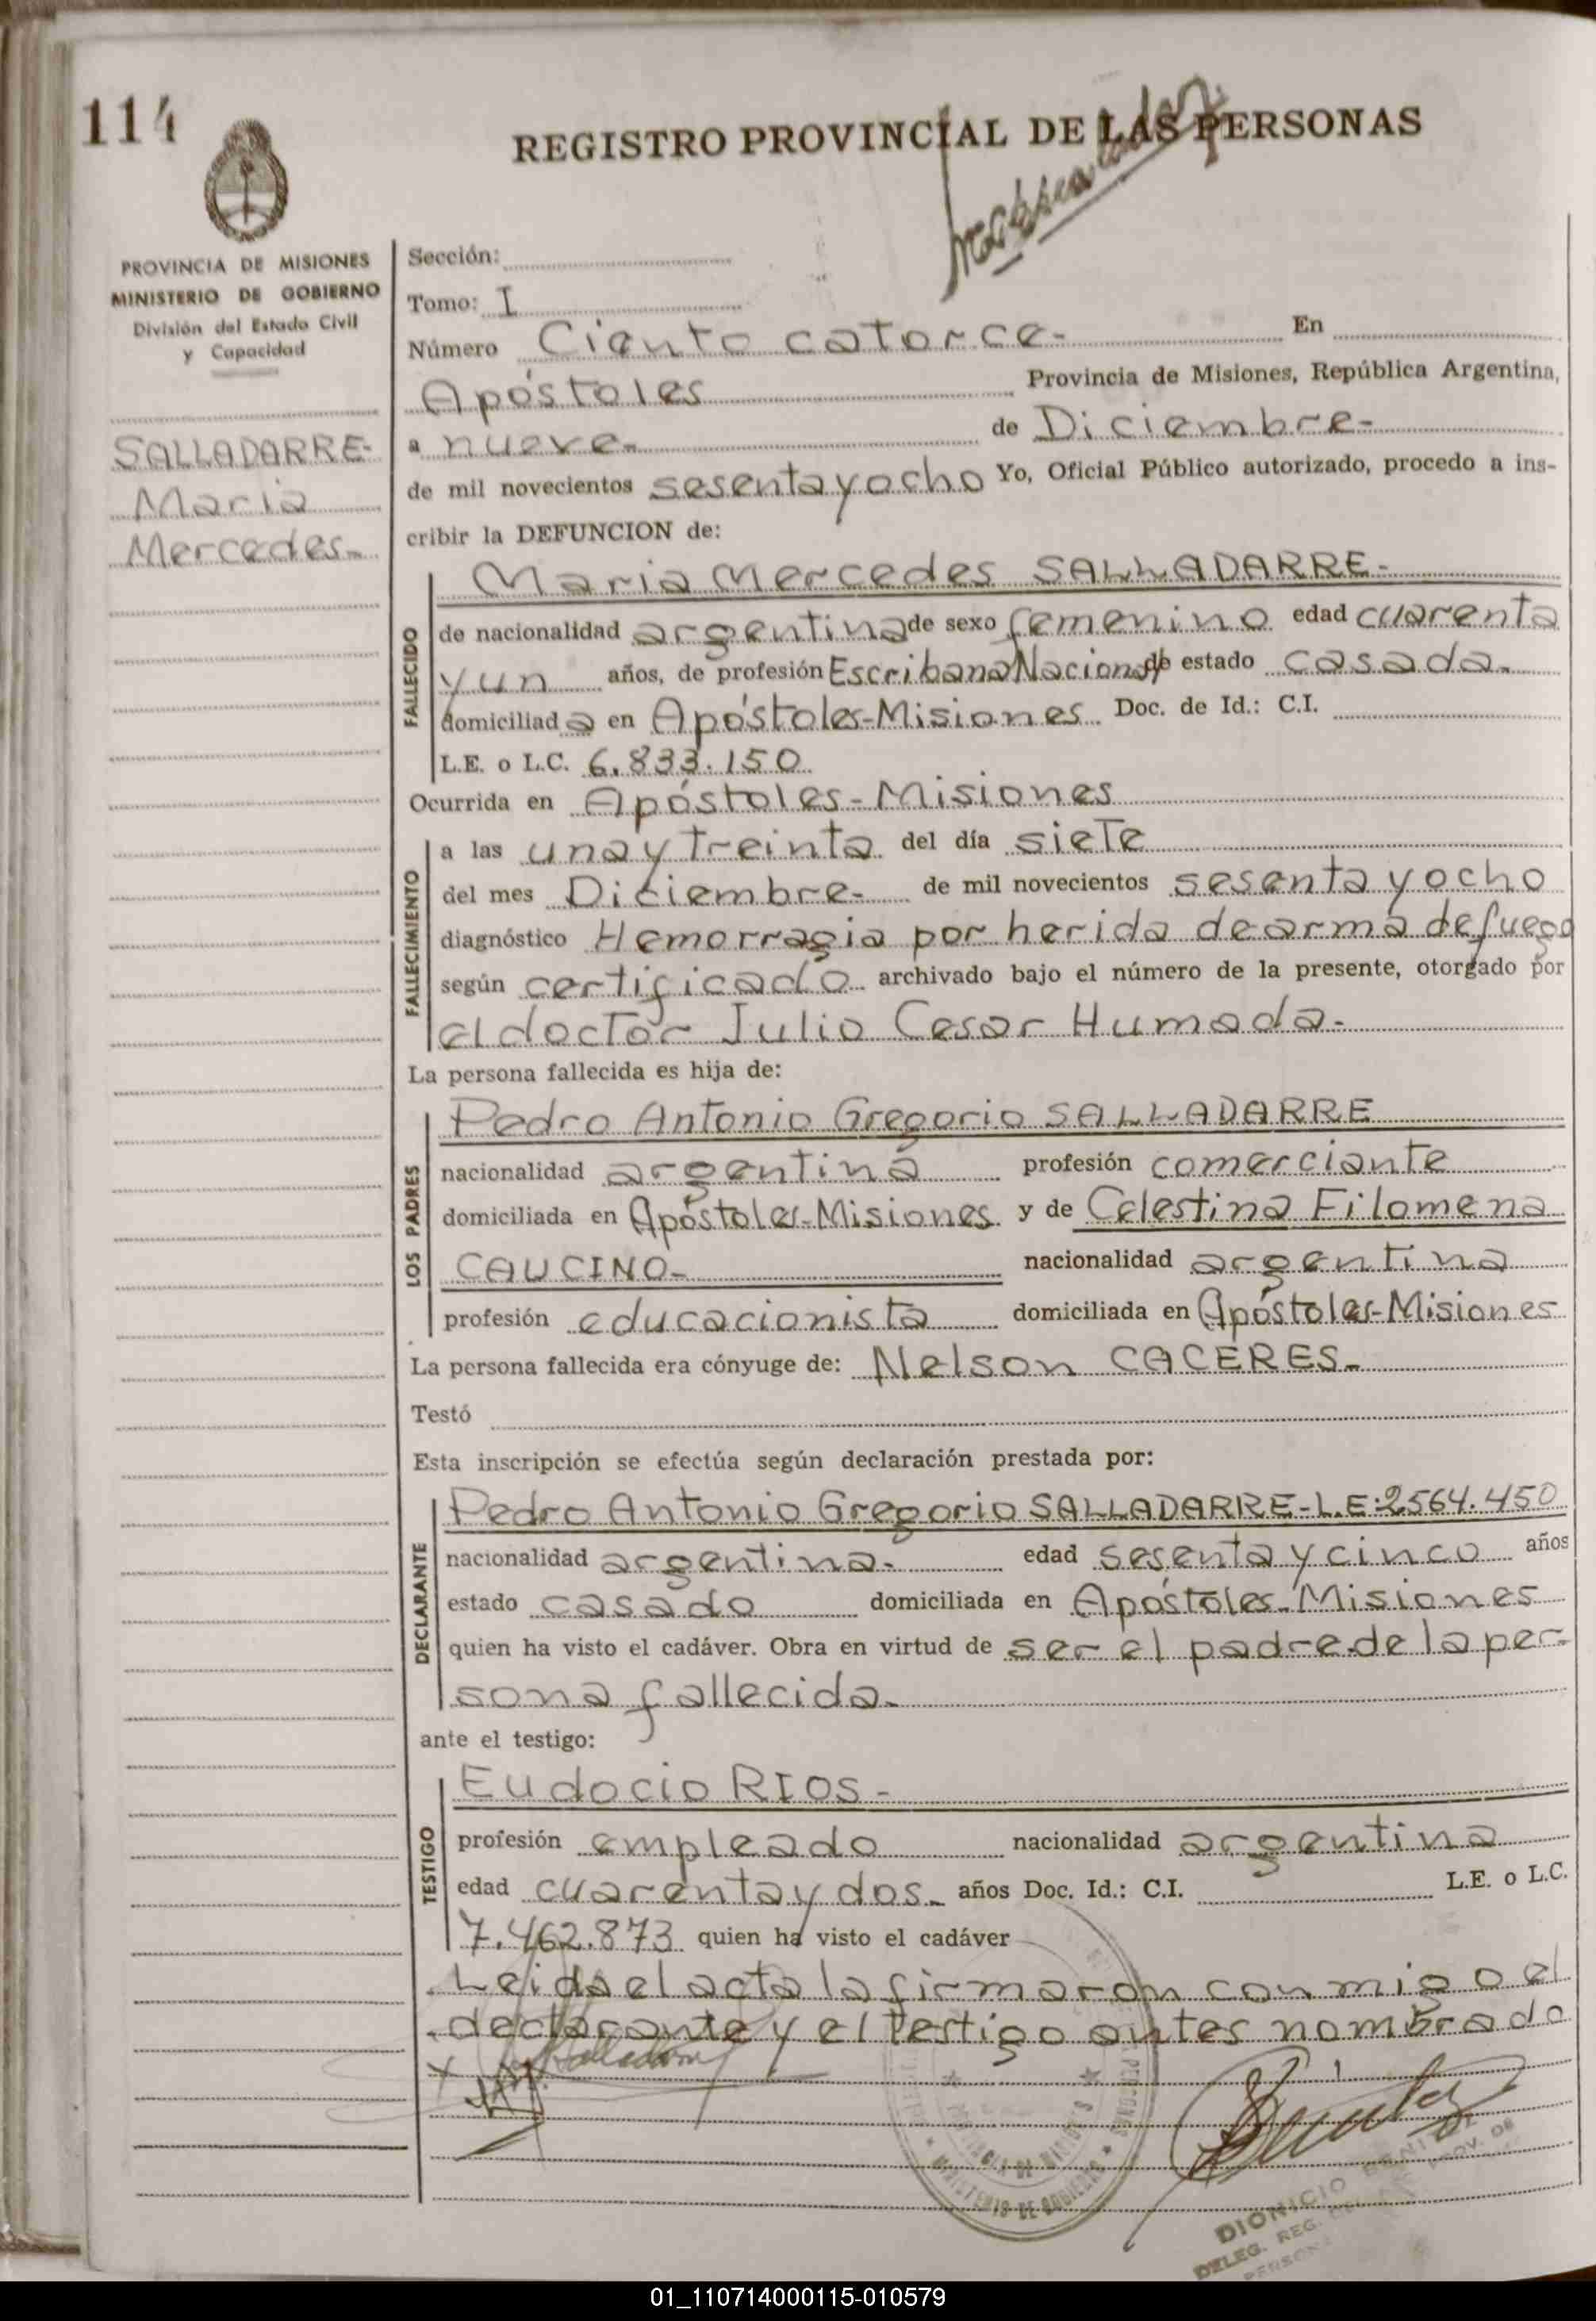 114
REGISTRO PROVINCIAL DE LAS PERSONAS
PROVINCIA DE MISIONES
MINISTERIO DE GOBIERNO
División del Estado Civil
y Capacidad
SALLADARRE-
Maria
Mercedes-
Sección:
Tomo: I
Número Ciento catorce- En
Apóstoles Provincia de Misiones, República Argentina,
a nueve- de Diciembre-
de mil novecientos sesenta y ocho Yo, Oficial Público autorizado, procedo a ins-
cribir la DEFUNCION de:
FALLECIDO
Maria Mercedes SALLADARRE-
de nacionalidad argentina de sexo femenino edad cuarenta
y un años, de profesión Escribana Nacional de estado casada-
domiciliada en Apóstoles-Misiones Doc. de Id.: C.I.
L.E. o L.C. 6.833.150
Ocurrida en Apóstoles-Misiones
FALLECIMIENTO
a las una y treinta del día siete
del mes Diciembre- de mil novecientos sesenta y ocho
diagnóstico Hemorragia por herida de arma de fuego
según certificado archivado bajo el número de la presente, otorgado por
el doctor Julio Cesar Humada-
La persona fallecida es hija de:
LOS PADRES
Pedro Antonio Gregorio SALLADARRE
nacionalidad argentina profesión comerciante
domiciliada en Apóstoles-Misiones y de Celestina Filomena
CAUCINO- nacionalidad argentina
profesión educacionista domiciliada en Apóstoles-Misiones
La persona fallecida era cónyuge de: Nelson CACERES-
Testó
Esta inscripción se efectúa según declaración prestada por:
DECLARANTE
Pedro Antonio Gregorio SALLADARRE-L.E:2564.450
nacionalidad argentina- edad sesenta y cinco años
estado casado domiciliada en Apóstoles-Misiones
quien ha visto el cadáver. Obra en virtud de ser el padre de la per-
sona fallecida-
ante el testigo:
TESTIGO
Eudocio RIOS-
profesión empleado nacionalidad argentina
edad cuarenta y dos- años Doc. Id.: C.I. L.E. o L.C.
7.462.873 quien ha visto el cadáver
Leida el acta la firmaron conmigo el
declarante y el testigo antes nombrado
MINISTERIO DE GOBIERNO
DIONICIO BENITEZ
DELEG. REG. PROV. DE
PERSONAS
01_110714000115-010579